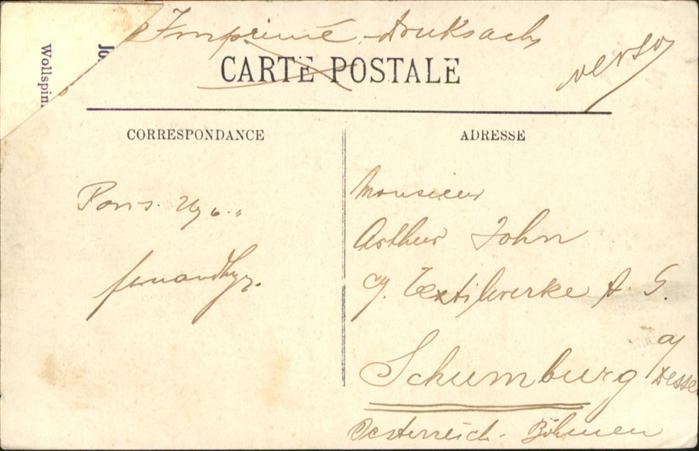 Imprimé Druksach
verso
Jo
Wollspin
CARTE POSTALE
CORRESPONDANCE
ADRESSE
Paris
Monsieur
Arthur John
Textilwerke A. G.
Schumburg a/
Desse
Oesterreich - Böhmen